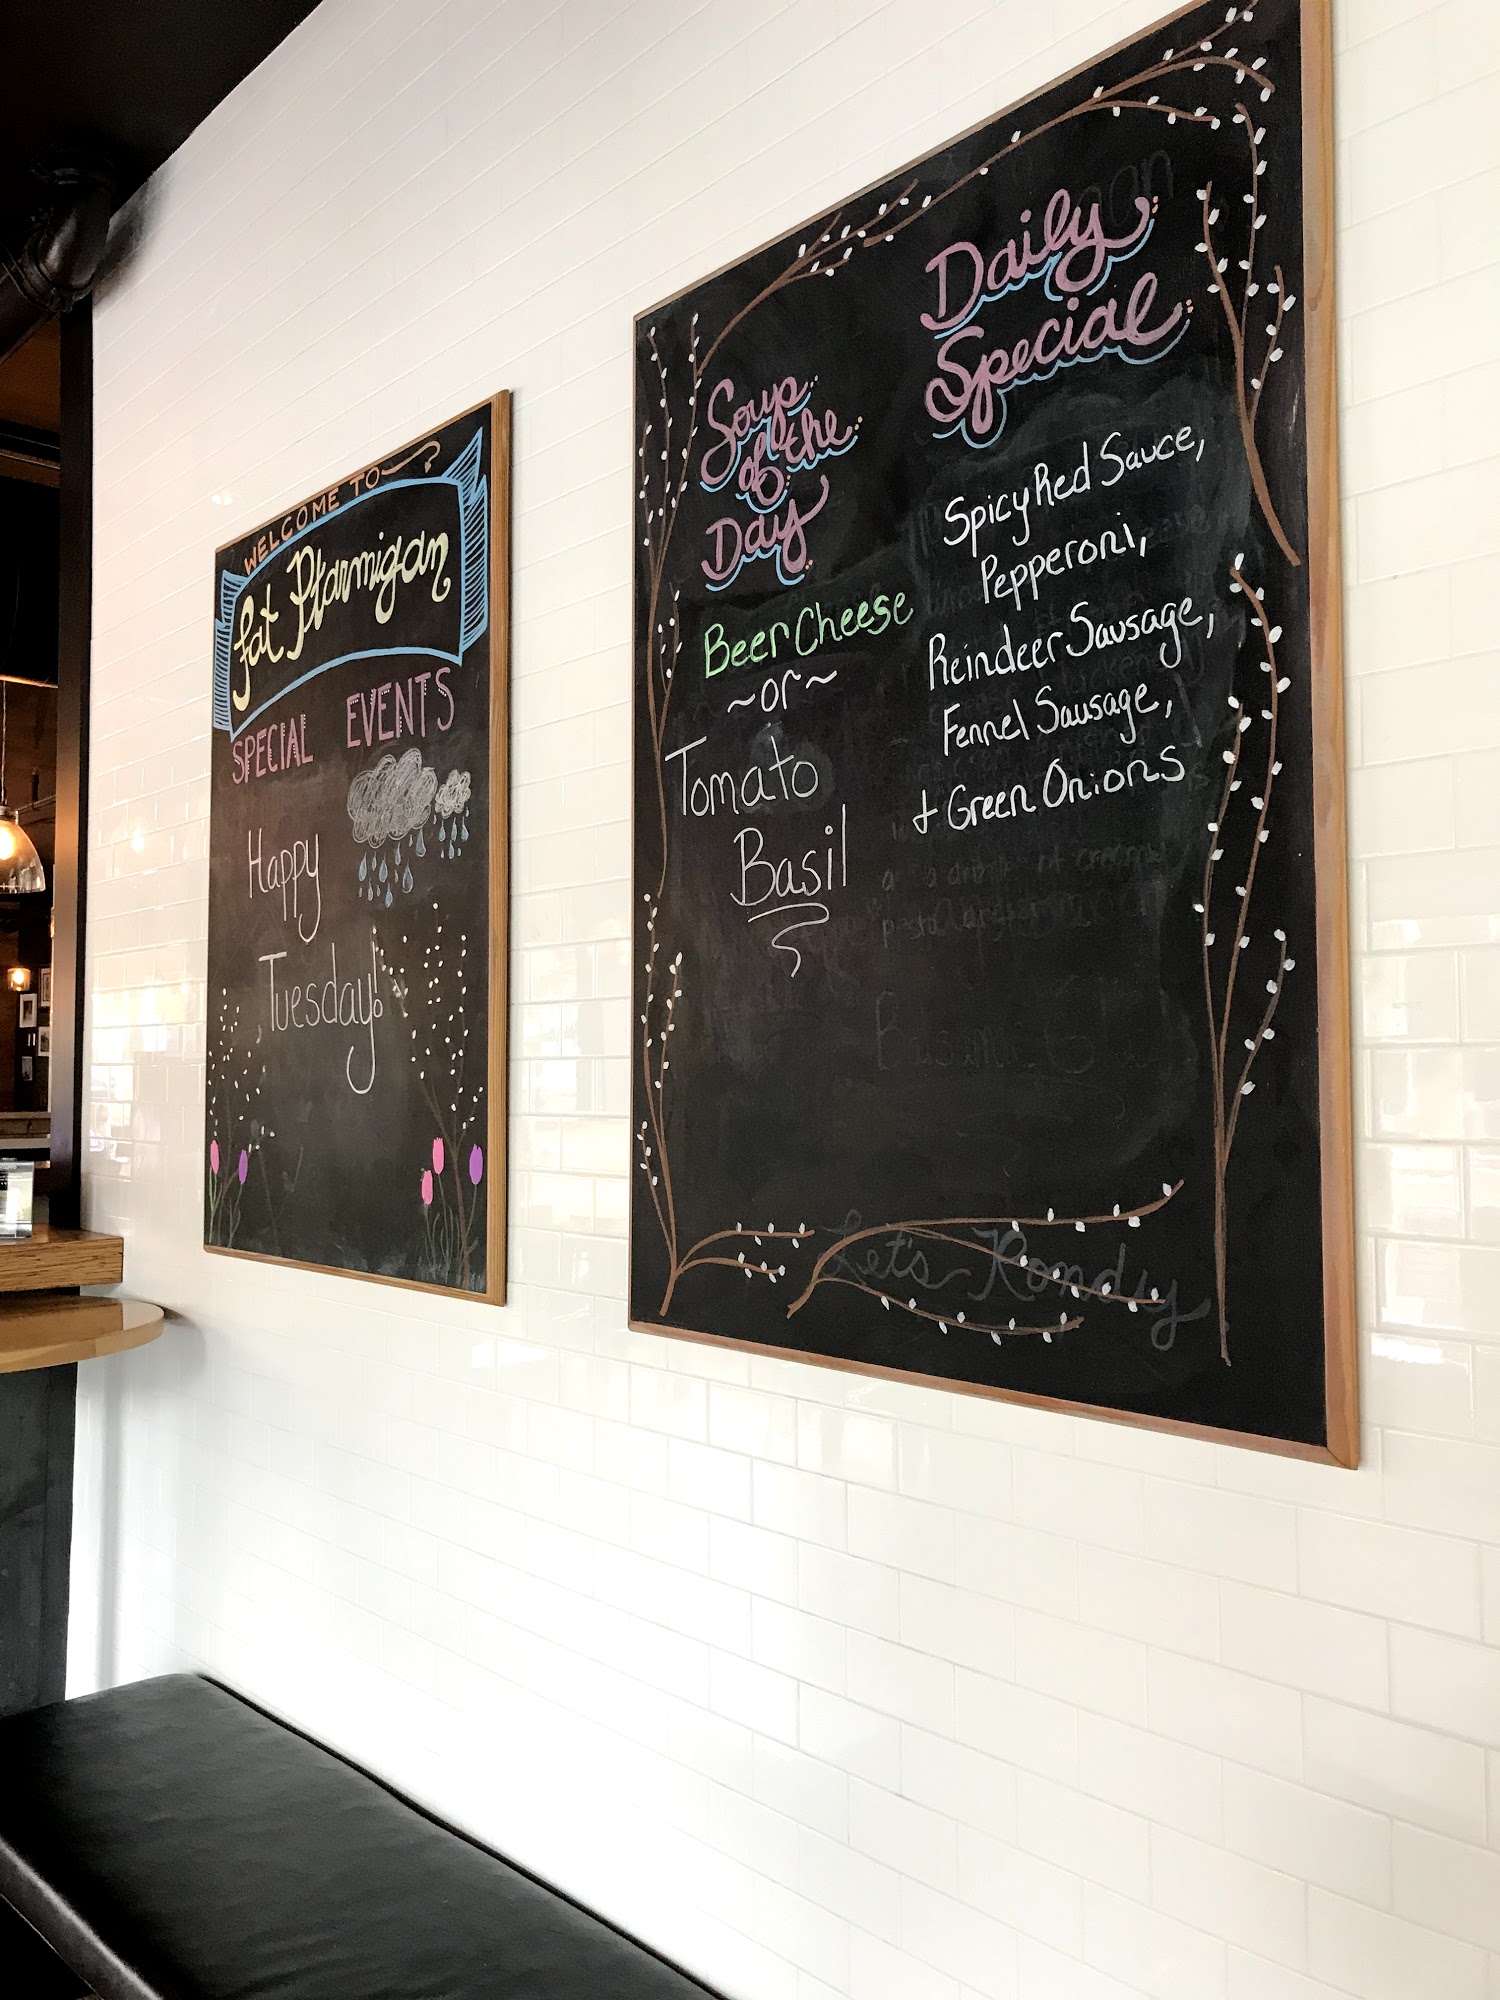 WELCOME TO
fat Ptarmigan
SPECIAL EVENTS
Happy
Tuesday!
Soup
of the
Day
Beer Cheese
~or~
Tomato
Basil
Daily
Special
Spicy Red Sauce,
Pepperoni,
Reindeer Sausage,
Fennel Sausage,
+ Green Onions
Let's